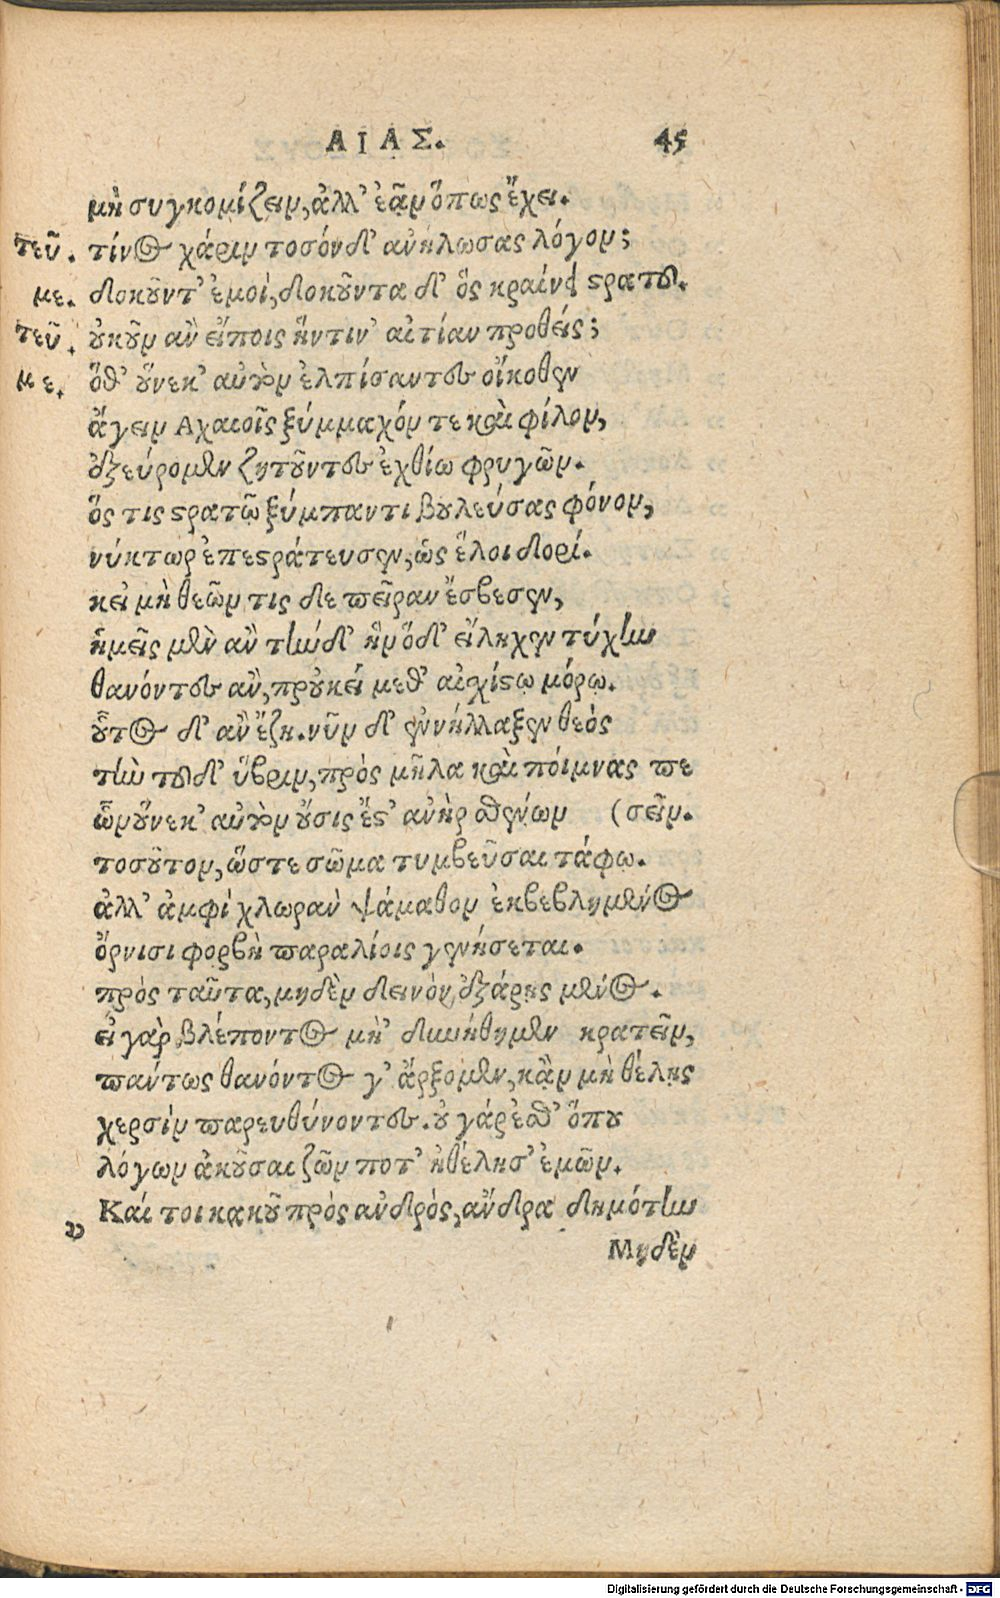 ΑΙΑΣ. 45
μὴ συγκομίζειν, ἀλλ' ἐᾷν ὅπως ἔχει.
τεῦ. τίνος χάριν τοσόνδ' ἀνήλωσας λόγον;
με. δοκοῦντ' ἐμοὶ, δοκοῦντα δ' ὃς κραίνει στρατοῦ.
τεῦ. οὐκοῦν ἂν εἴποις ἥντιν' αἰτίαν προθείς;
με. ὅθ' οὕνεκ' αὐτὸν ἐλπίσαντες οἴκοθεν
ἄγειν Αχαιοῖς ξύμμαχόν τε καὶ φίλον,
ἐξεύρομεν ζητοῦντες ἐχθίω φρυγῶν.
ὅς τις στρατῷ ξύμπαντι βουλεύσας φόνον,
νύκτωρ ἐπεστράτευσεν, ὡς ἕλοι δορί.
κεἰ μὴ θεῶν τις δε πεῖραν ἔσβεσεν,
ἡμεῖς μὲν ἂν τήνδ' ἣν ὅδ' εἴληχεν τύχην
θανόντες ἂν, προὐκείμεθ' αἰσχίστῳ μόρῳ.
οὗτος δ' ἂν ἔζη. νῦν δ' ἐνήλλαξεν θεὸς
τὴν τοῦδ' ὕβριν, πρὸς μῆλα καὶ ποίμνας πε
ὧν οὕνεκ' αὐτὸν οὔσις ἔστ' ἀνὴρ σθένων (σεῖν.
τοσοῦτον, ὥστε σῶμα τυμβεῦσαι τάφῳ.
ἀλλ' ἀμφὶ χλωρὰν ψάμαθον ἐκβεβλημένος
ὄρνισι φορβὴ παραλίοις γενήσεται.
πρὸς ταῦτα, μηδὲν δεινὸν ἐξάρῃς μένος.
εἰ γὰρ βλέποντος μὴ' δυνήθημεν κρατεῖν,
πάντως θανόντος γ' ἄρξομεν, κἂν μὴ θέλῃς
χερσὶν παρευθύνοντες. οὐ γάρ ἐσθ' ὅπου
λόγων ἀκοῦσαι ζῶν ποτ' ἠθέλησ' ἐμῶν.
Καί τοι κακοῦ πρὸς ἀνδρὸς, ἄνδρα δημότην
Μηδὲν
Digitalisierung gefördert durch die Deutsche Forschungsgemeinschaft - DFG